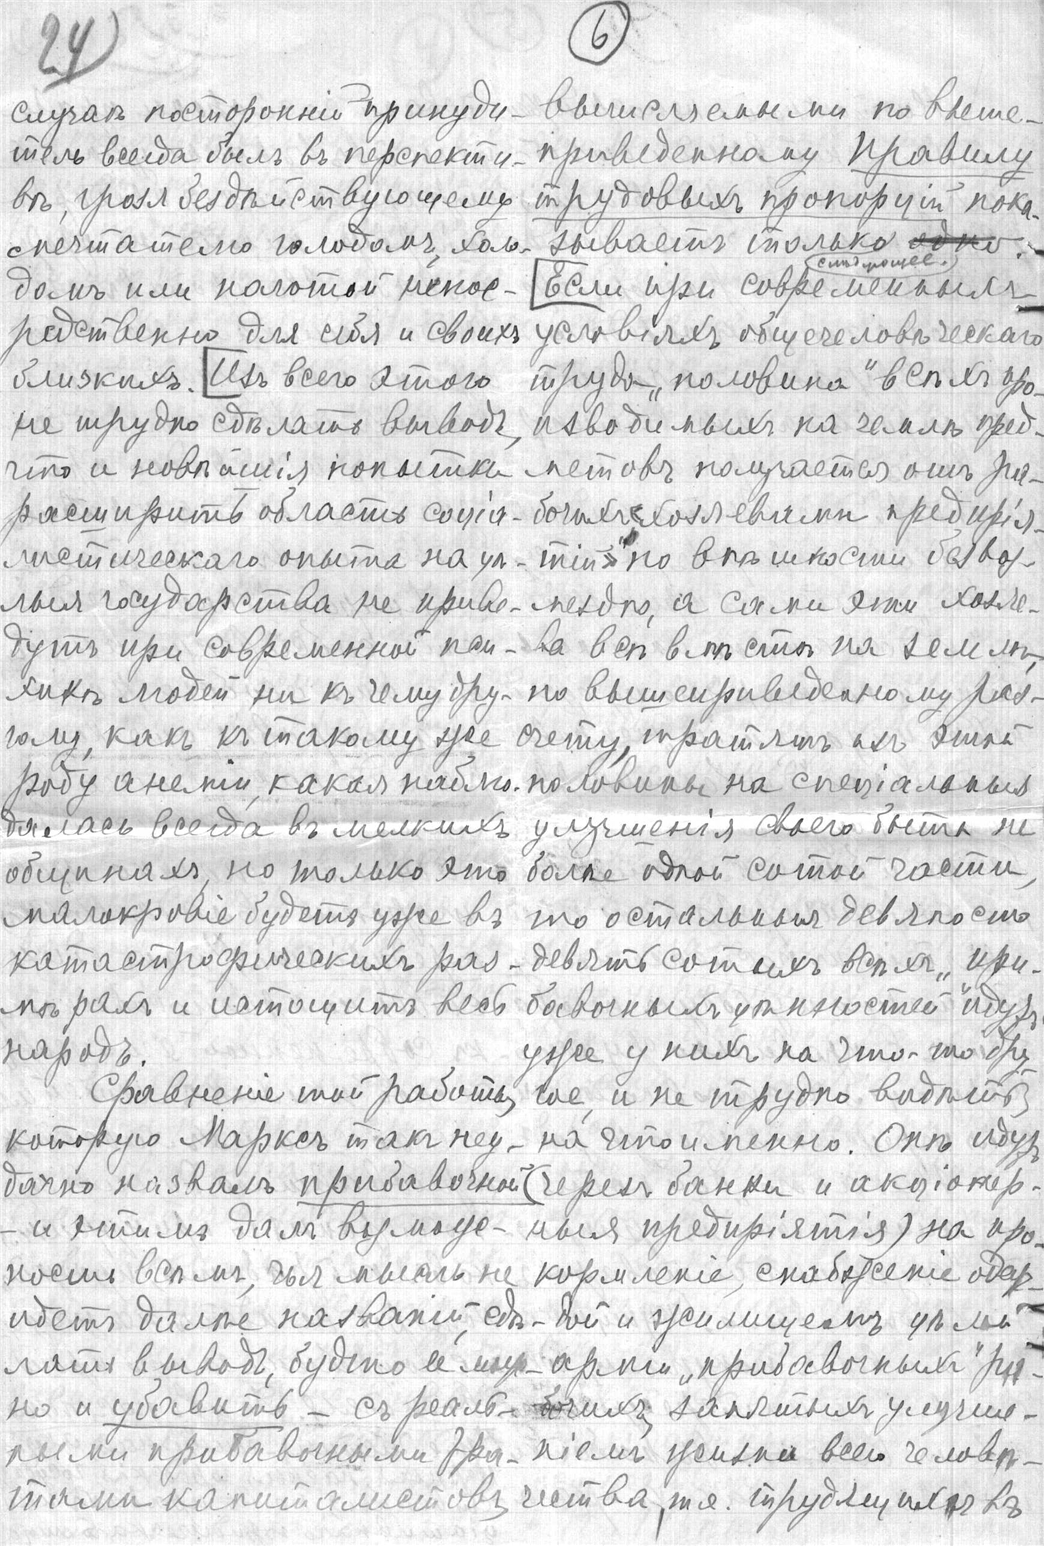 24
6
случаѣ посторонній принуди-
тель всегда былъ въ перспекти-
вѣ, грозя бездѣйствующему
мечтателю голодомъ, холо-
домъ или наготой непос-
редственно для себя и своихъ
близкихъ. Изъ всего этого
не трудно сдѣлать выводъ,
что и новѣйшія попытки
расширить область соціа-
листическаго опыта на цѣ-
лыя государства не приве-
дутъ при современной пси-
хикѣ людей ни къ чему дру-
гому, какъ къ такому же
роду анеміи, какая наблю-
далась всегда въ мелкихъ
общинахъ, но только это
малокровіе будетъ уже въ
катастрофическихъ раз-
мѣрахъ и истощитъ весь
народъ.
Сравненіе той работы,
которую Марксъ такъ неу-
дачно назвалъ прибавочной
- и этимъ далъ возмож-
ность всѣмъ, чья мысль не
идетъ далѣе названій, сдѣ-
лать выводъ, будто ее мож-
но и убавить - съ реаль-
ными прибавочными тра-
тами капиталистовъ,
вычисляемыми по выше-
приведенному правилу
трудовыхъ пропорцій пока-
зываетъ только одно.
слѣдующее.
Если при современныхъ
условіяхъ общечеловѣческаго
труда „половина“ всѣхъ про-
изводимыхъ на землѣ пред-
метовъ получается отъ ра-
бочихъ „хозяевами предпрія-
тій“ по внѣшности безвоз-
мездно, а сами эти хозяе-
ва всѣ вмѣстѣ на землѣ,
по вышеприведенному раз-
счету, тратятъ изъ этой
половины на спеціальныя
улучшенія своего быта не
болѣе одной сотой части,
то остальныя девяносто
девять сотыхъ всѣхъ „при-
бавочныхъ цѣнностей“ идутъ
уже у нихъ на что-то дру
гое, и не трудно видѣть,
на что именно. Онѣ идутъ
(черезъ банки и акціонер-
ныя предпріятія) на про-
кормленіе, снабженіе одеж-
дой и жилищемъ цѣлой
арміи „прибавочныхъ“ ра-
бочихъ, занятыхъ улучше-
ніемъ жизни всего человѣ-
чества, т.е. трудящихся въ